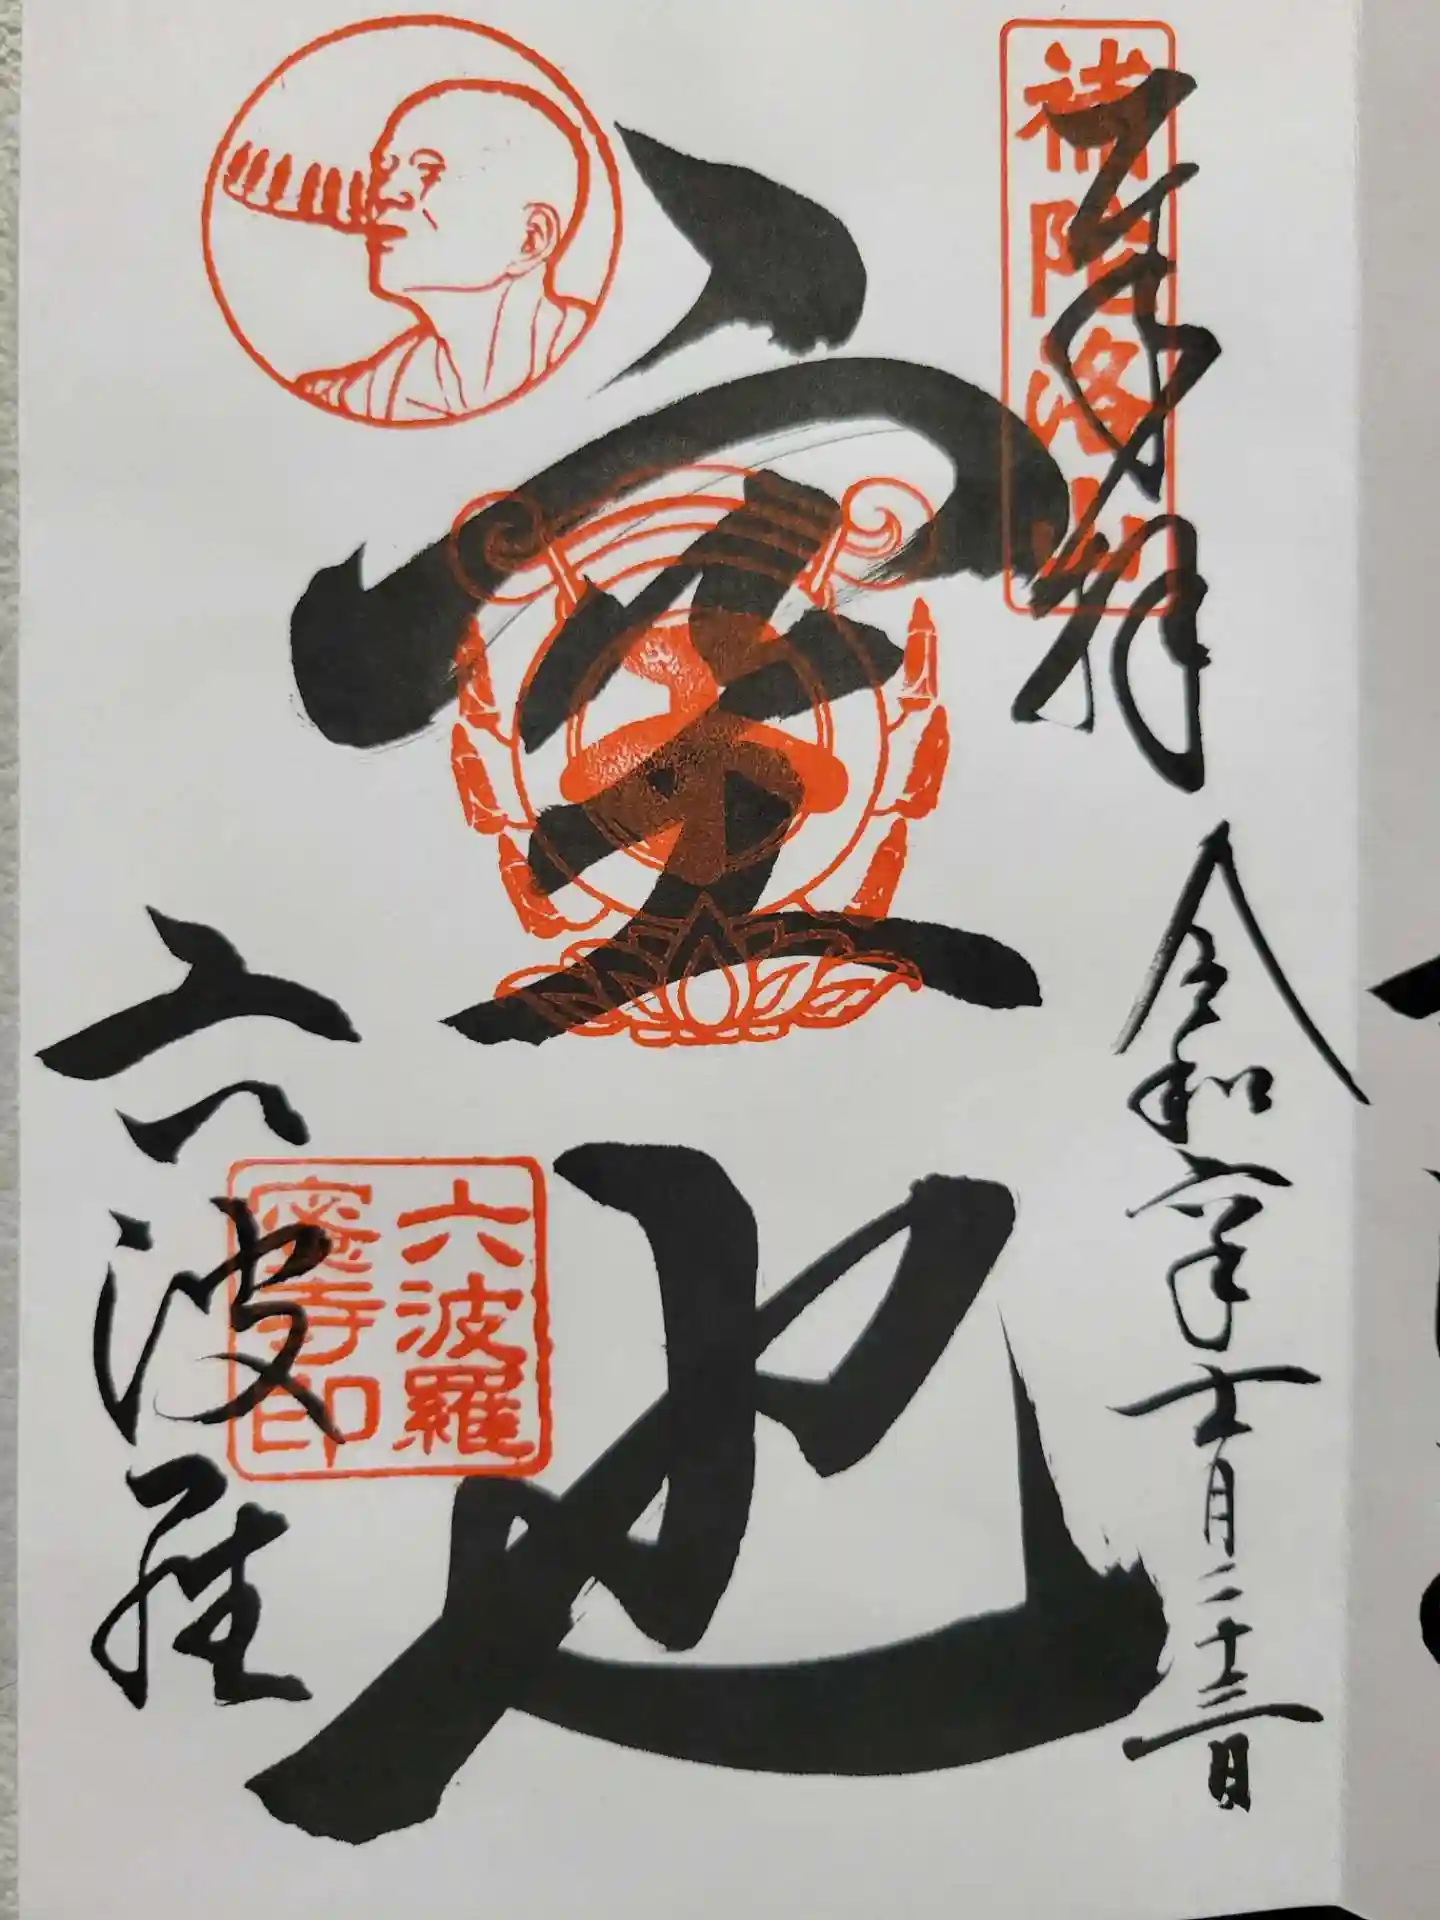 奉拝
補陀洛山
令和六年十一月二十三日
空也
六波羅
蜜寺印
六波羅